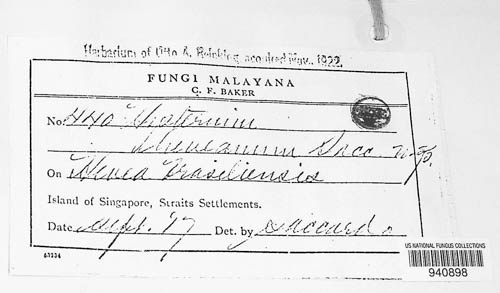 Herbarium of Otto A. Reinking, acquired Nov., 1922.
FUNGI MALAYANA
C. F. BAKER
No. 440
Sacc. n. sp.
On Hevea Brasiliensis
Island of Singapore, Straits Settlements.
Date Sept. '17 Det. by Saccardo
US NATIONAL FUNGUS COLLECTIONS
940898